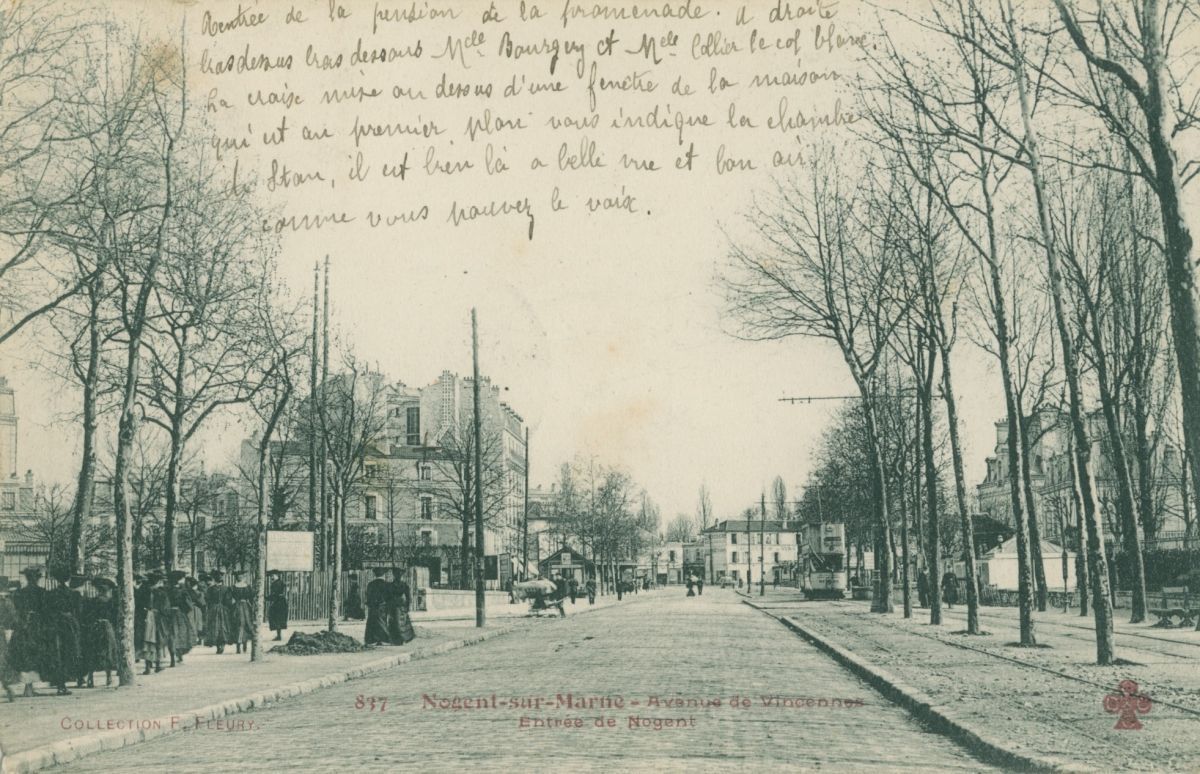 Rentrée de la pension de la promenade. A droite
bras dessus bras dessous Melle Bourguy et Melle Collier le col blanc.
La croix mise au dessus d'une fenêtre de la maison
qui est au premier plan vous indique la chambre
de Stan, il est bien là a belle vue et bon air
comme vous pouvez le voir.
837 - Nogent-sur-Marne - Avenue de Vincennes
Entrée de Nogent
COLLECTION F. FLEURY.